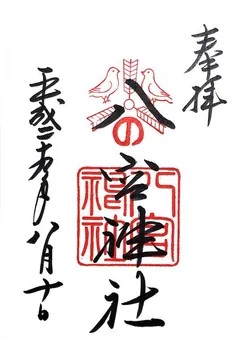 奉拝
八の宮神社
八宮
神社
平成二十五年八月十日